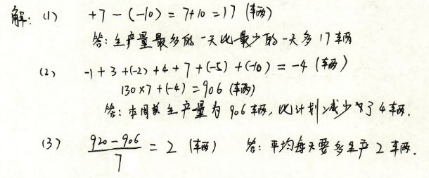 解：(1) +7-(-10)=7+10=17 (辆)
答：生产量最多的一天比最少的一天多17辆
(2) -1+3+(-2)+4+7+(-5)+(-10)=-4 (辆)
130×7+(-4)=906 (辆)
答：本周总生产量为906辆，比计划减少了4辆.
(3) \frac{920-906}{7}=2 (辆) 答：平均每天要多生产2辆.